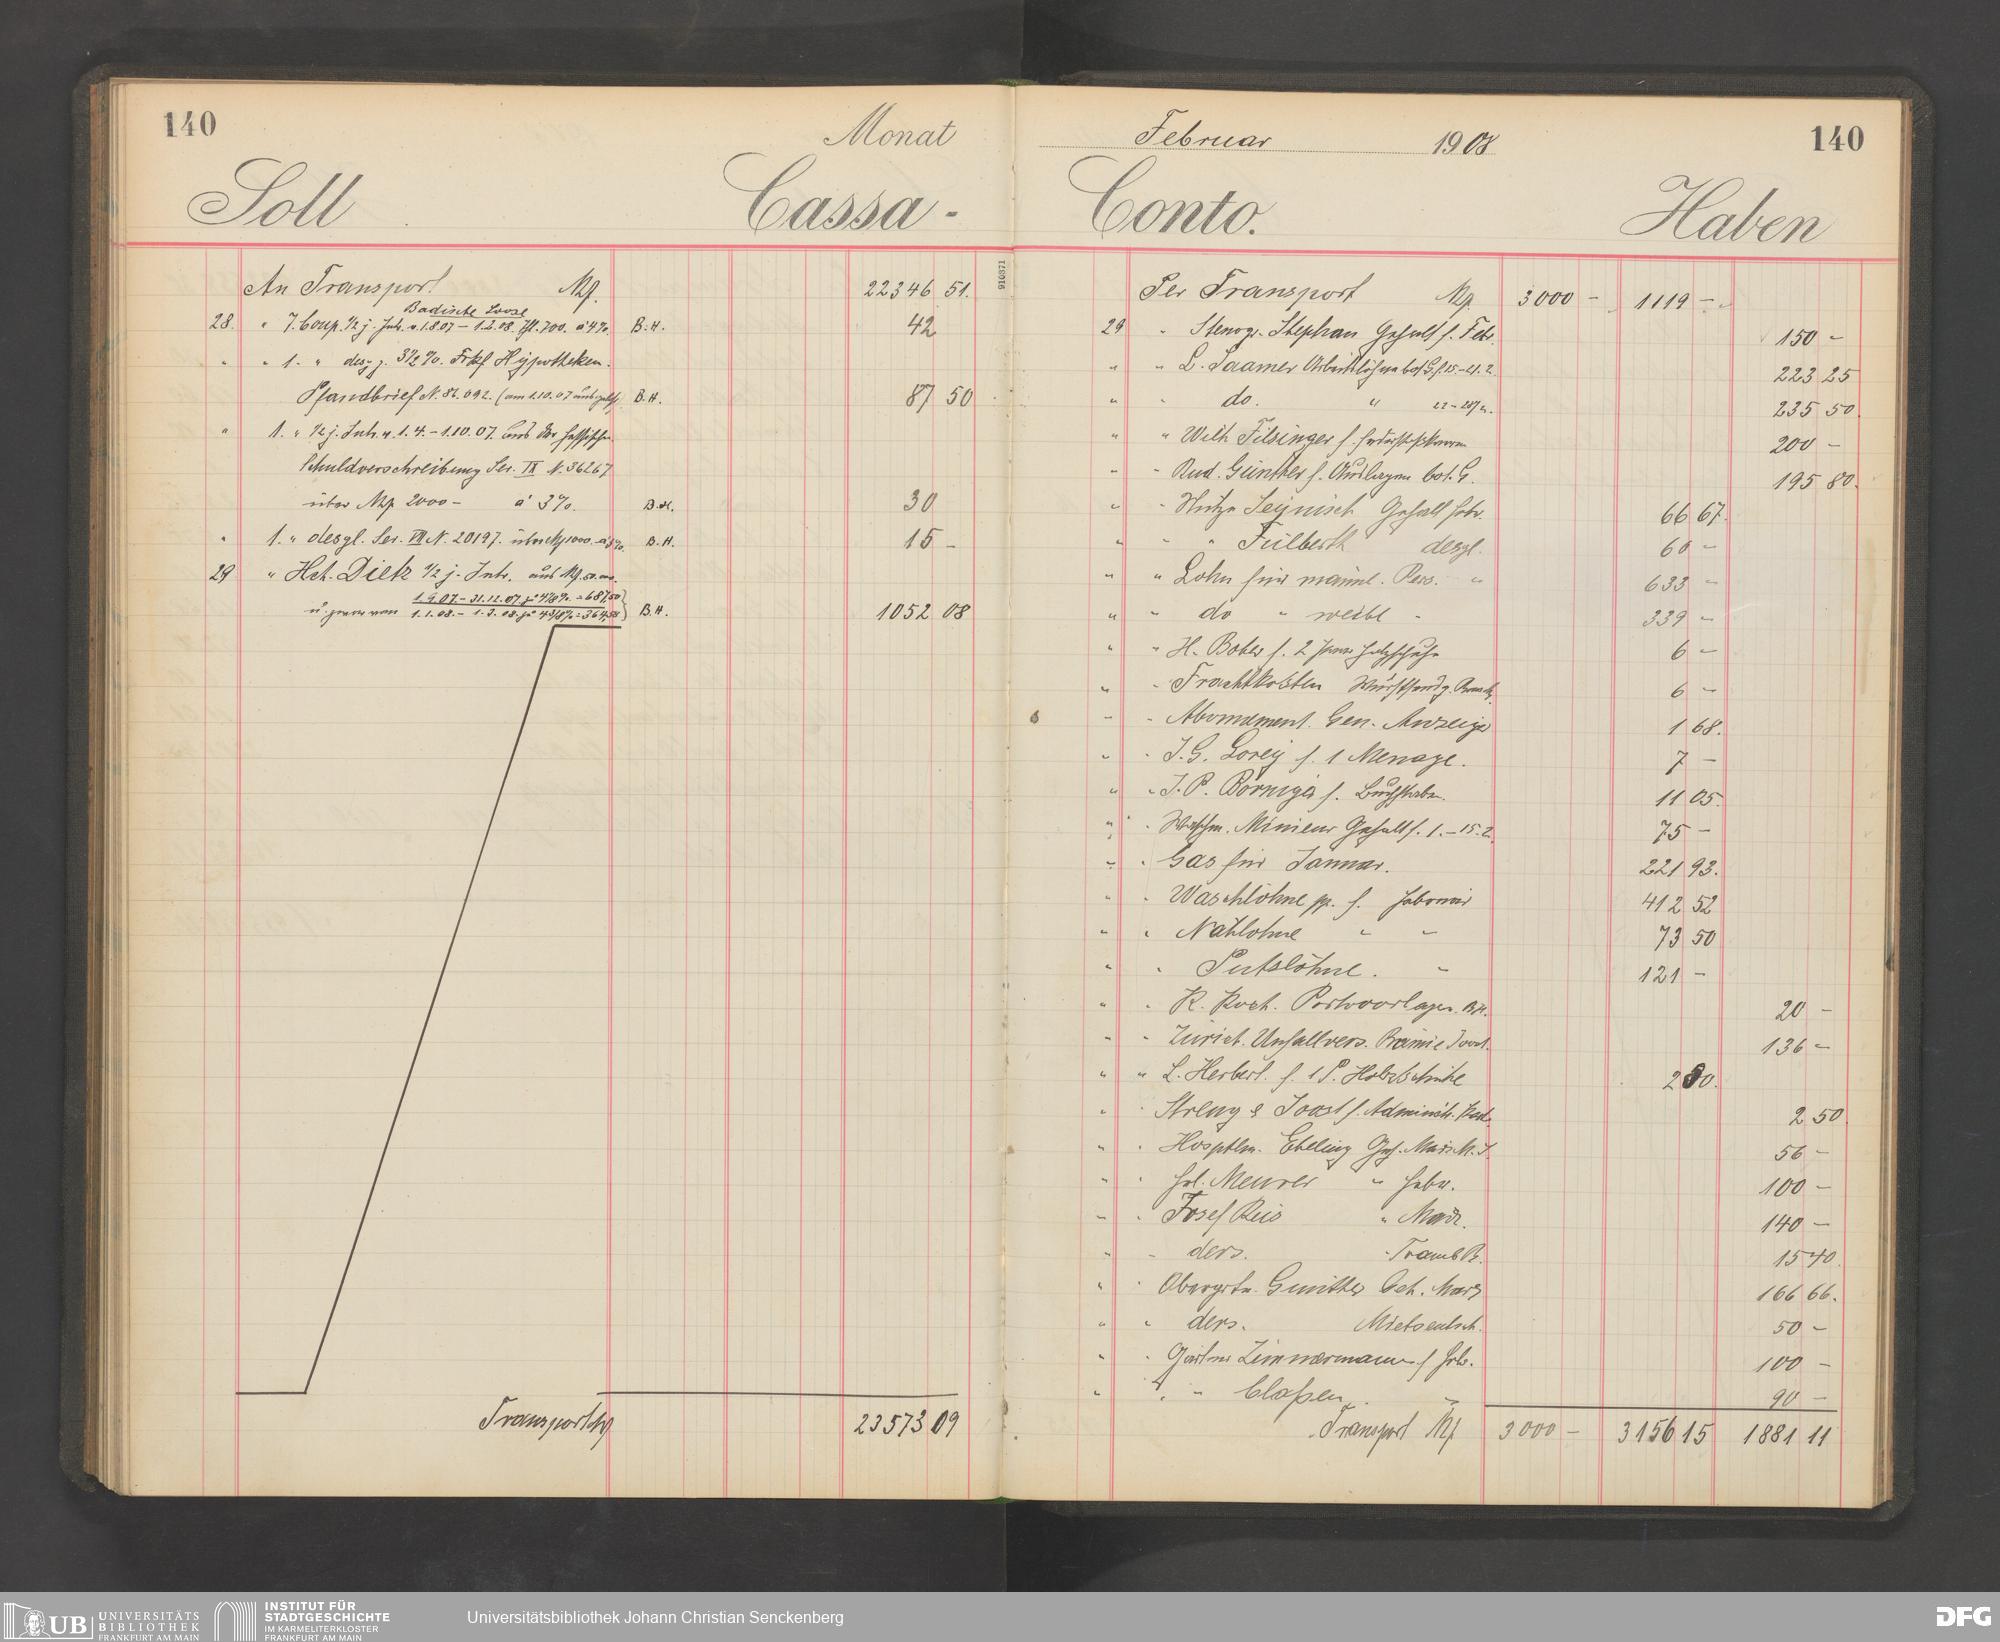 140
Monat
Soll
Cassa-
An Transport Mk. 22346 51.
Badische Loose
28. " 7. Coup. 1/2 j. Intr. v. 1.8.07 – 1.2.08. fl. 700. à 4%. B.H. 42
" " 1. " desgl. 3 1/2 %. Frkf. Hypotheken-
Pfandbrief N. 86.092. (am 1.10.07 B.H. 87 50
" 1. " 1/2 j. Intr. v. 1.4. – 1.10.07. aus der hessischen
Schuldverschreibung Ser. IX N. 36267
über Mk 2000 – à 3%. B.H. 30
" 1. " desgl. Ser. VII N. 20197. über Mk 1000. à 3%. B.H. 15 –
29 " Hch. Dietz 1/2 j. Intr. aus Mk. 50.000.
1.9.07. – 31.12.07. à 4 1/8 %. = 687,50
u. zwar von 1.1.08. – 1.3.08 à 4 3/8 % = 364,58 B.H. 1052 08
Transport Mk 23573 09
916371
Februar 1908
140
Conto.
Haben
Per Transport Mk. 3000 – 1119 –
29 " Stenogr. Stephan Gehalt f. Febr. 150 –
" " L. Saamer Arbeitslöhne bot. G. f. 15.–21.2. 223 25
" " do. " 22–28/2. 235 50.
" " Wilh. Filsinger f. 200 –
" " Rud. Günther f. Auslagen bot. G. 195 80.
" " Gehalt Febr. 66 67.
" " " Fülberth desgl. 60 –
" " Lohn für männl. Pers. " 633 –
" " do " weibl " 339 –
" " H. Bober f. 2 Paar Holzschuhe 6 –
" " Frachtkosten 6 –
" " Abonnement. Gen. Anzeiger 1 68.
" " J.G. Lorey f. 1 Menage. 7 –
" " J.P. Borniger f. Buchstaben. 11 05.
" " Waschm. Minieur Gehalt f. 1.–15.2. 75 –
" " Gas für Januar. 221 93.
" " Waschlöhne pp. f. Februar 412 52
" " Nählöhne " " 73 50
" " Putzlöhne. " 121 –
" " K. Koch. Portovorlagen. B.H. 20 –
" " Zürich. Unfallvers. Prämie Joost. 136 –
" " L. Herbert. f. 1 P. Holzschuhe 2 50.
" " Streng & Joost f. Administr. 2 50
" " Hosptlm. Ebeling Geh. März 56 –
" " Frl. Meurer " Febr. 100 –
" " Josef Reis " März. 140 –
" " ders. " Tramb. 15 40
" " Obergrtn. Günther Geh. März 166 66.
" " ders. Mietsentsch. 50 –
" " Gärtner Zimmermann f Feb. 100 –
" " " Claßen. " 90 –
Transport Mk 3000 – 3156 15 1881 11
UB UNIVERSITÄTS
BIBLIOTHEK
FRANKFURT AM MAIN
INSTITUT FÜR
STADTGESCHICHTE
IM KARMELITERKLOSTER
FRANKFURT AM MAIN
Universitätsbibliothek Johann Christian Senckenberg
DFG